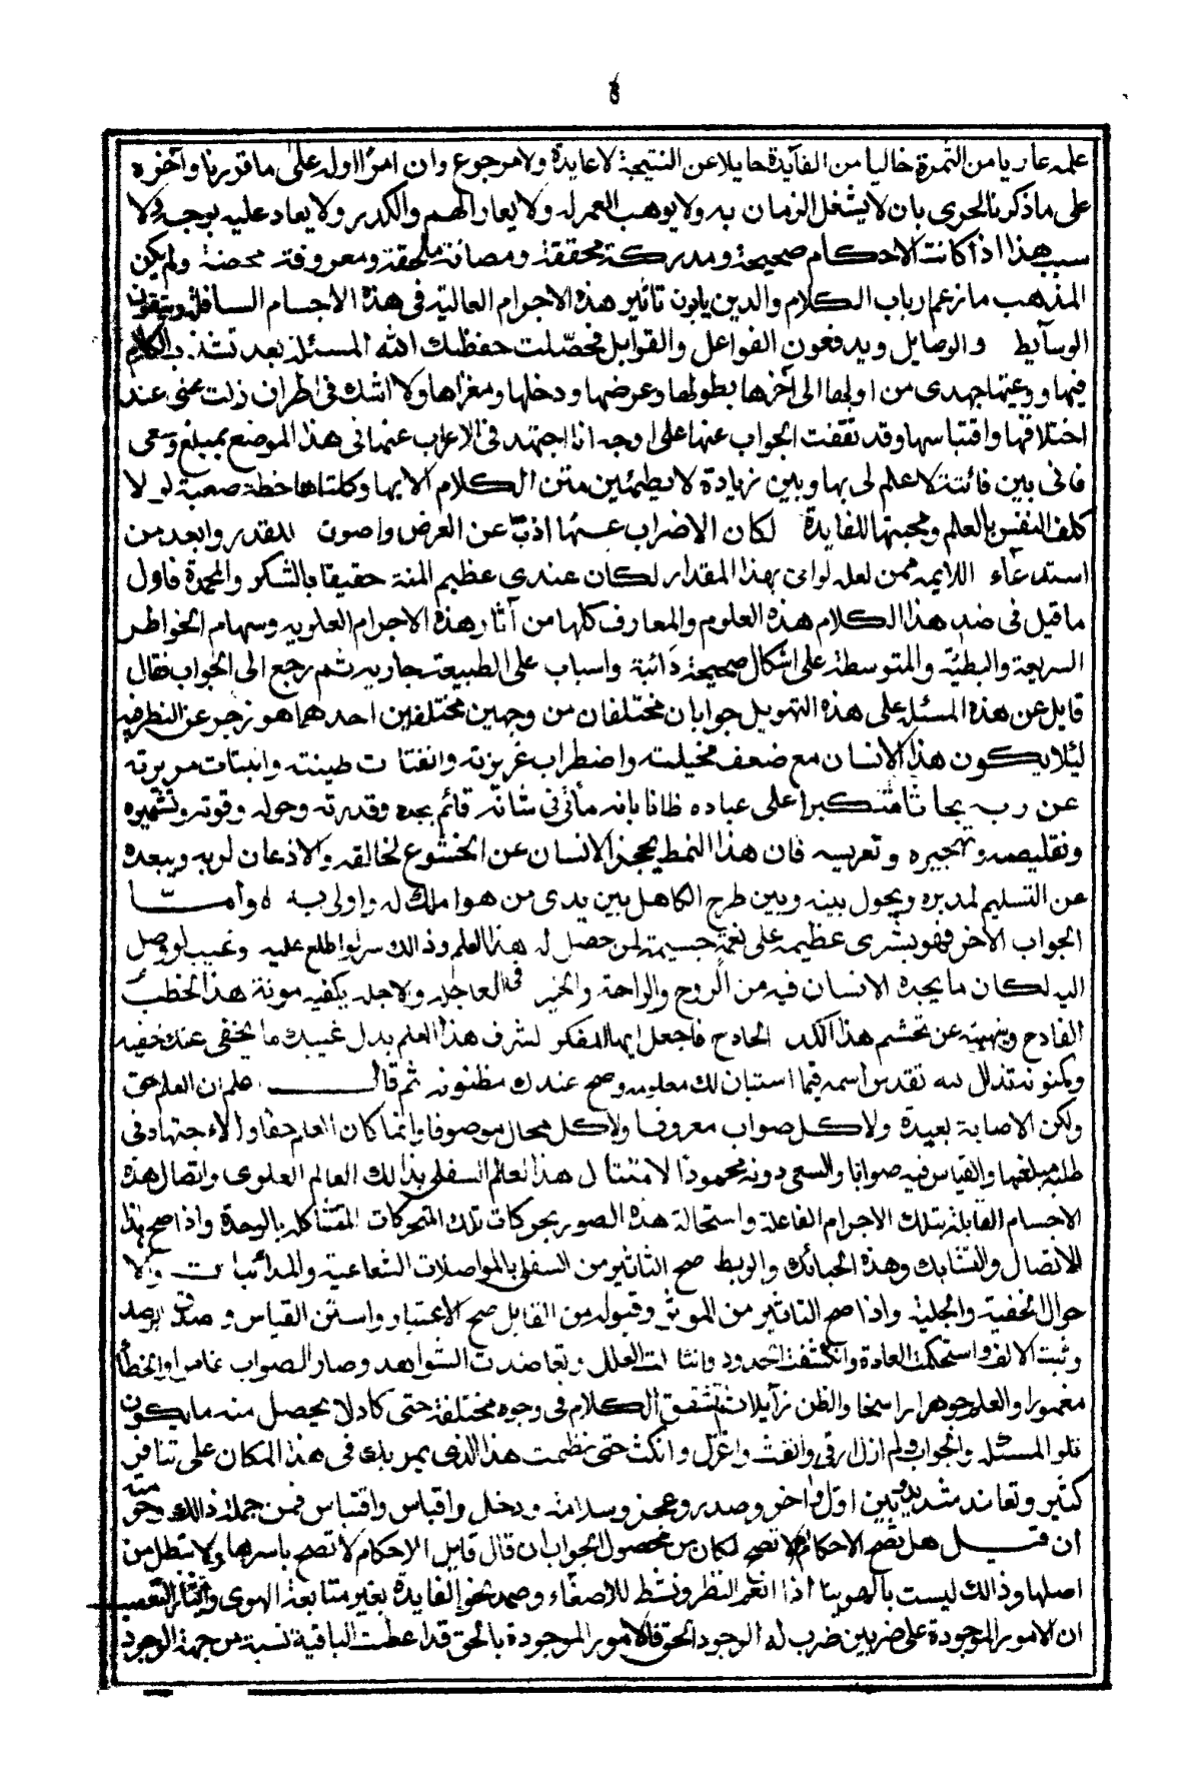 علمه عاريا من الثمرة خاليا من الفآيدة حايلا عن النتيجة لا عايدة ولا مرجوع وان امرًا اوله على ما قررنا وآخره
على ما ذكرنا لحرى بان لا يشغل الزمان به ولا يوهب العمر له ولا يعار الهم والكدر ولا يعاد عليه بوجه ولا
سبب هذا اذا كانت الاحكام صحيحة ومدركة محققة ومصانة ملحقة ومعروفة محصنة ولم يكن
المذهب ما زعم ارباب الكلام والدين يابون تاثير هذه الاجرام العالية في هذه الاجسام السافلة وينفون
الوسآيط والوصايل ويدفعون الفواعل والقوابل فحصّلت حفظك الله المسئلة بعد تشذب الكلام
فيها ووعيتها جهدى من اولها الى آخرها بطولها وعرضها ودخلها ومغزاها ولا اشك في اطراف زلت عنى عند
اختلافها واقتباسها وقد نقفت الجواب عنها على اوجه انا اجتهد في الاعراب عنها في هذا الموضع بمبلغ وسعى
فانى بين فائتة لا علم لى بها وبين زيادة لا يطمئين متن الكلام الا بها وكلتاها خطة صعبة لو لا
كلف النفس بالعلم ومحبتها للفايدة لكان الاضراب عنها اذبّ عن العرض واصون للقدر وابعد من
استدعآء اللايمة ممن لعله لو اتى بهذا المقدار لكان عندى عظيم المنة حقيقا بالشكر والمحمدة فاول
ما قيل في ضد هذا الكلام هذه العلوم والمعارف كلها من آثار هذه الاجرام العلوية وسهام الخواطر
السريعة والبطيّة والمتوسطة على اشكال صحيحة دائبة واسباب على الطبيعة جارية ثم رجع الى الجواب فقال
قايل عن هذه المسئلة على هذه التهويل جوابان مختلفان من وجهين مختلفين احدهما هو زجر عن النظر فيه
لئلا يكون هذا الانسان مع ضعف مخيلته واضطراب غريزته وانفتات طينته وانبتات مريرته
عن رب بحاثا متكبرا على عباده ظانا بانه مأتى في شانه قائم بجده وقدرته وحوله وقوته وتشميره
وتقليصه وتهجيره وتعريسه فان هذا النمط يحجز الانسان عن الخشوع لخالقه والاذعان لربه ويبعده
عن التسليم لمدبره ويحول بينه وبين طرح الكاهل بين يدى من هو املك له واولى به وأمــا
الجواب الآخر فهو بشرى عظيمه على نعمة جسيمة لمن حصل له هذا العلم وذالك سر لو اطلع عليه وغيب لو وصل
اليه لكان ما يجده الانسان فيه من الروح والراحة والخير في العاجله والاجله يكفيه مونة هذا الخطب
الفادح وينهيه عن تجشم هذا الكد الكادح فاجعل ايها المفكر لشرف هذا العلم بدل عيبك ما يخفى عنك خفيه
ومكنونه تتذلل لله تقدس اسمه فيما استبان لك معلومه وصح عندك مظنونه ثم قال علم ان العلم حق
ولكن الاصابة بعيدة ولا كل صواب معروفا ولا كل محال موصوفا وانما كان العلم حقا والاجتهاد في
طلبه مبلغها والقياس فيه صوابا والسعى دونه محمودا لامتثال هذا العالم السفلى بذالك العالم العلوى واتصال هذه
الاجسام القابلة بتلك الاجرام الفاعلة واستحالة هذه الصور بحركات تلك المتحركات المتشاكله بالوحدة واذا صح هذا
الاتصال والتشابك وهذه الحبائك والربط صح التاثير من السفلى بالمواصلات الشعاعية والمدائبات والا
حوال الخفية والجلية واذا صح التاثير من الموثر وقبوله من القابل صح الاعتبار واستتن القياس وصدق الرصد
وثبت الالف واستحكمت العادة وانكشفت الحدود وانثالت العلل وتعاضدت الشواهد وصار الصواب غامرا والخطأ
مغمورا والعلم جوهرا راسخا والظن زآيلا فتشقق الكلام في وجوه مختلفة حتى كاد لا يحصل منه ما يكون
تلو المسئلة والجواب ولم ازل ارقى وانفث واغزل وانكث حتى نظمت هذا الذى يمر بك في هذا المكان على تنافر
كثير وتعاند شديد بين اول وآخر وصدر وعجز وسلامة ودخل واقباس واقتباس فمن جملة ذالك وحومته
ان قيــل هل تصح الاحكام ام لا تصح لكان من محصول الجواب ان قال قايل الاحكام لا تصح باسرها ولا تبطل من
اصلها وذالك ليست بالهوينا اذا انعم النظر ونشط للاصغاء وصمد نحو الفايدة بغير متابعة الهوى وايثار التعصب
ان الامور الموجودة على ضربين ضرب له الوجود الحق فالامور الموجودة بالحق قد اعطت الباقية نسبة من جهة الوجود